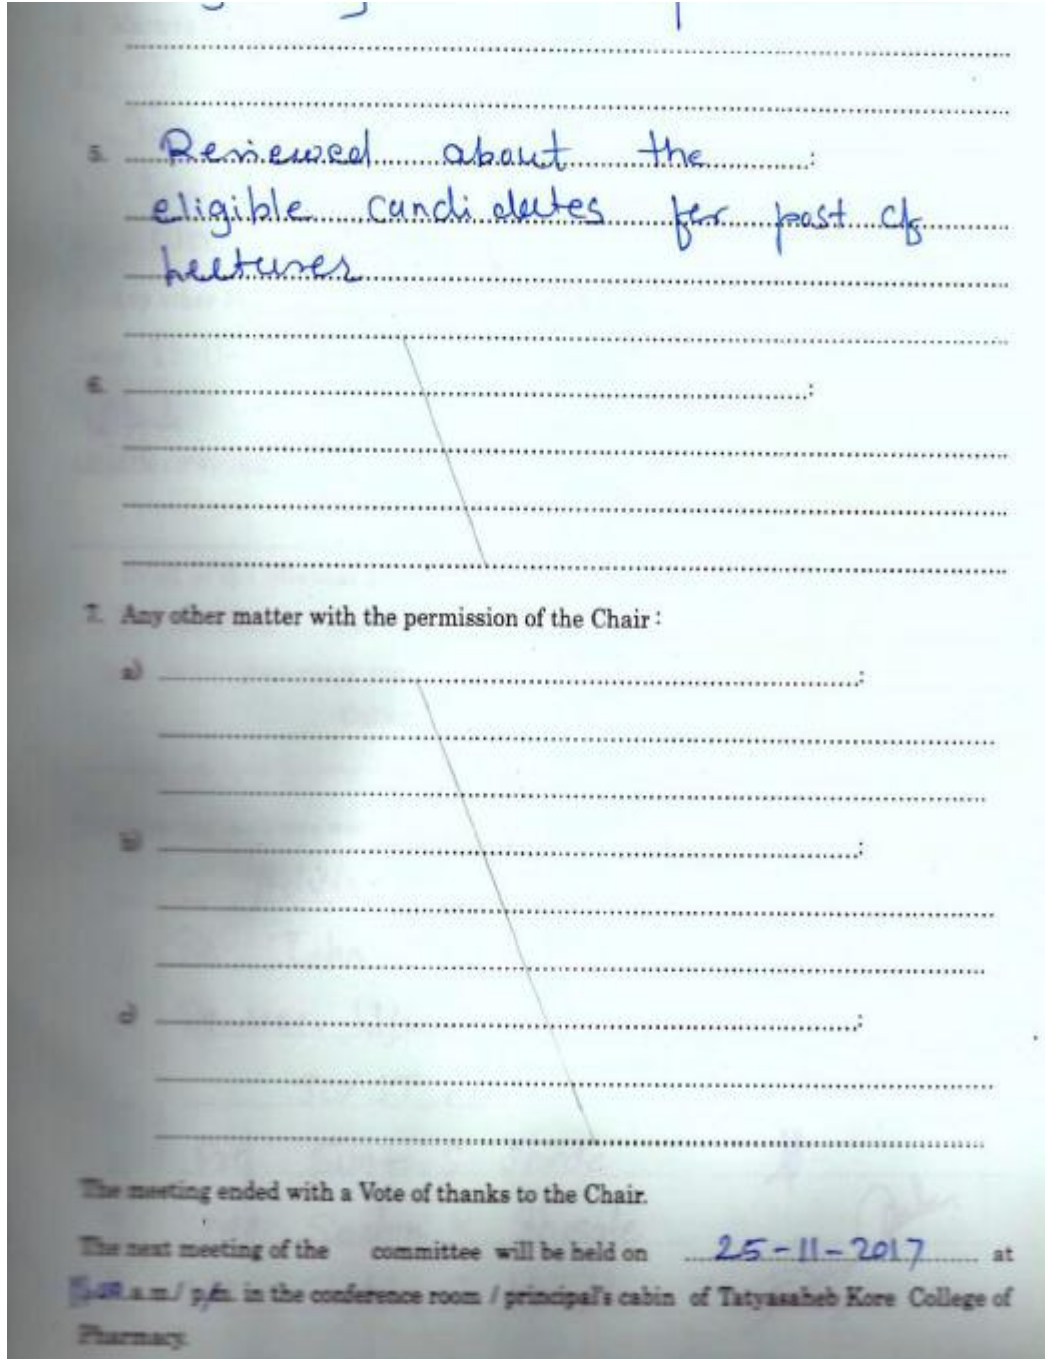 5. Reviewed about the :
eligible candidates for post of
lecturer
6. :
7. Any other matter with the permission of the Chair :
a) :
b) :
c) :
The meeting ended with a Vote of thanks to the Chair.
The next meeting of the committee will be held on 25-11-2017 at
a.m./ p.m. in the conference room / principal's cabin of Tatyasaheb Kore College of
Pharmacy.